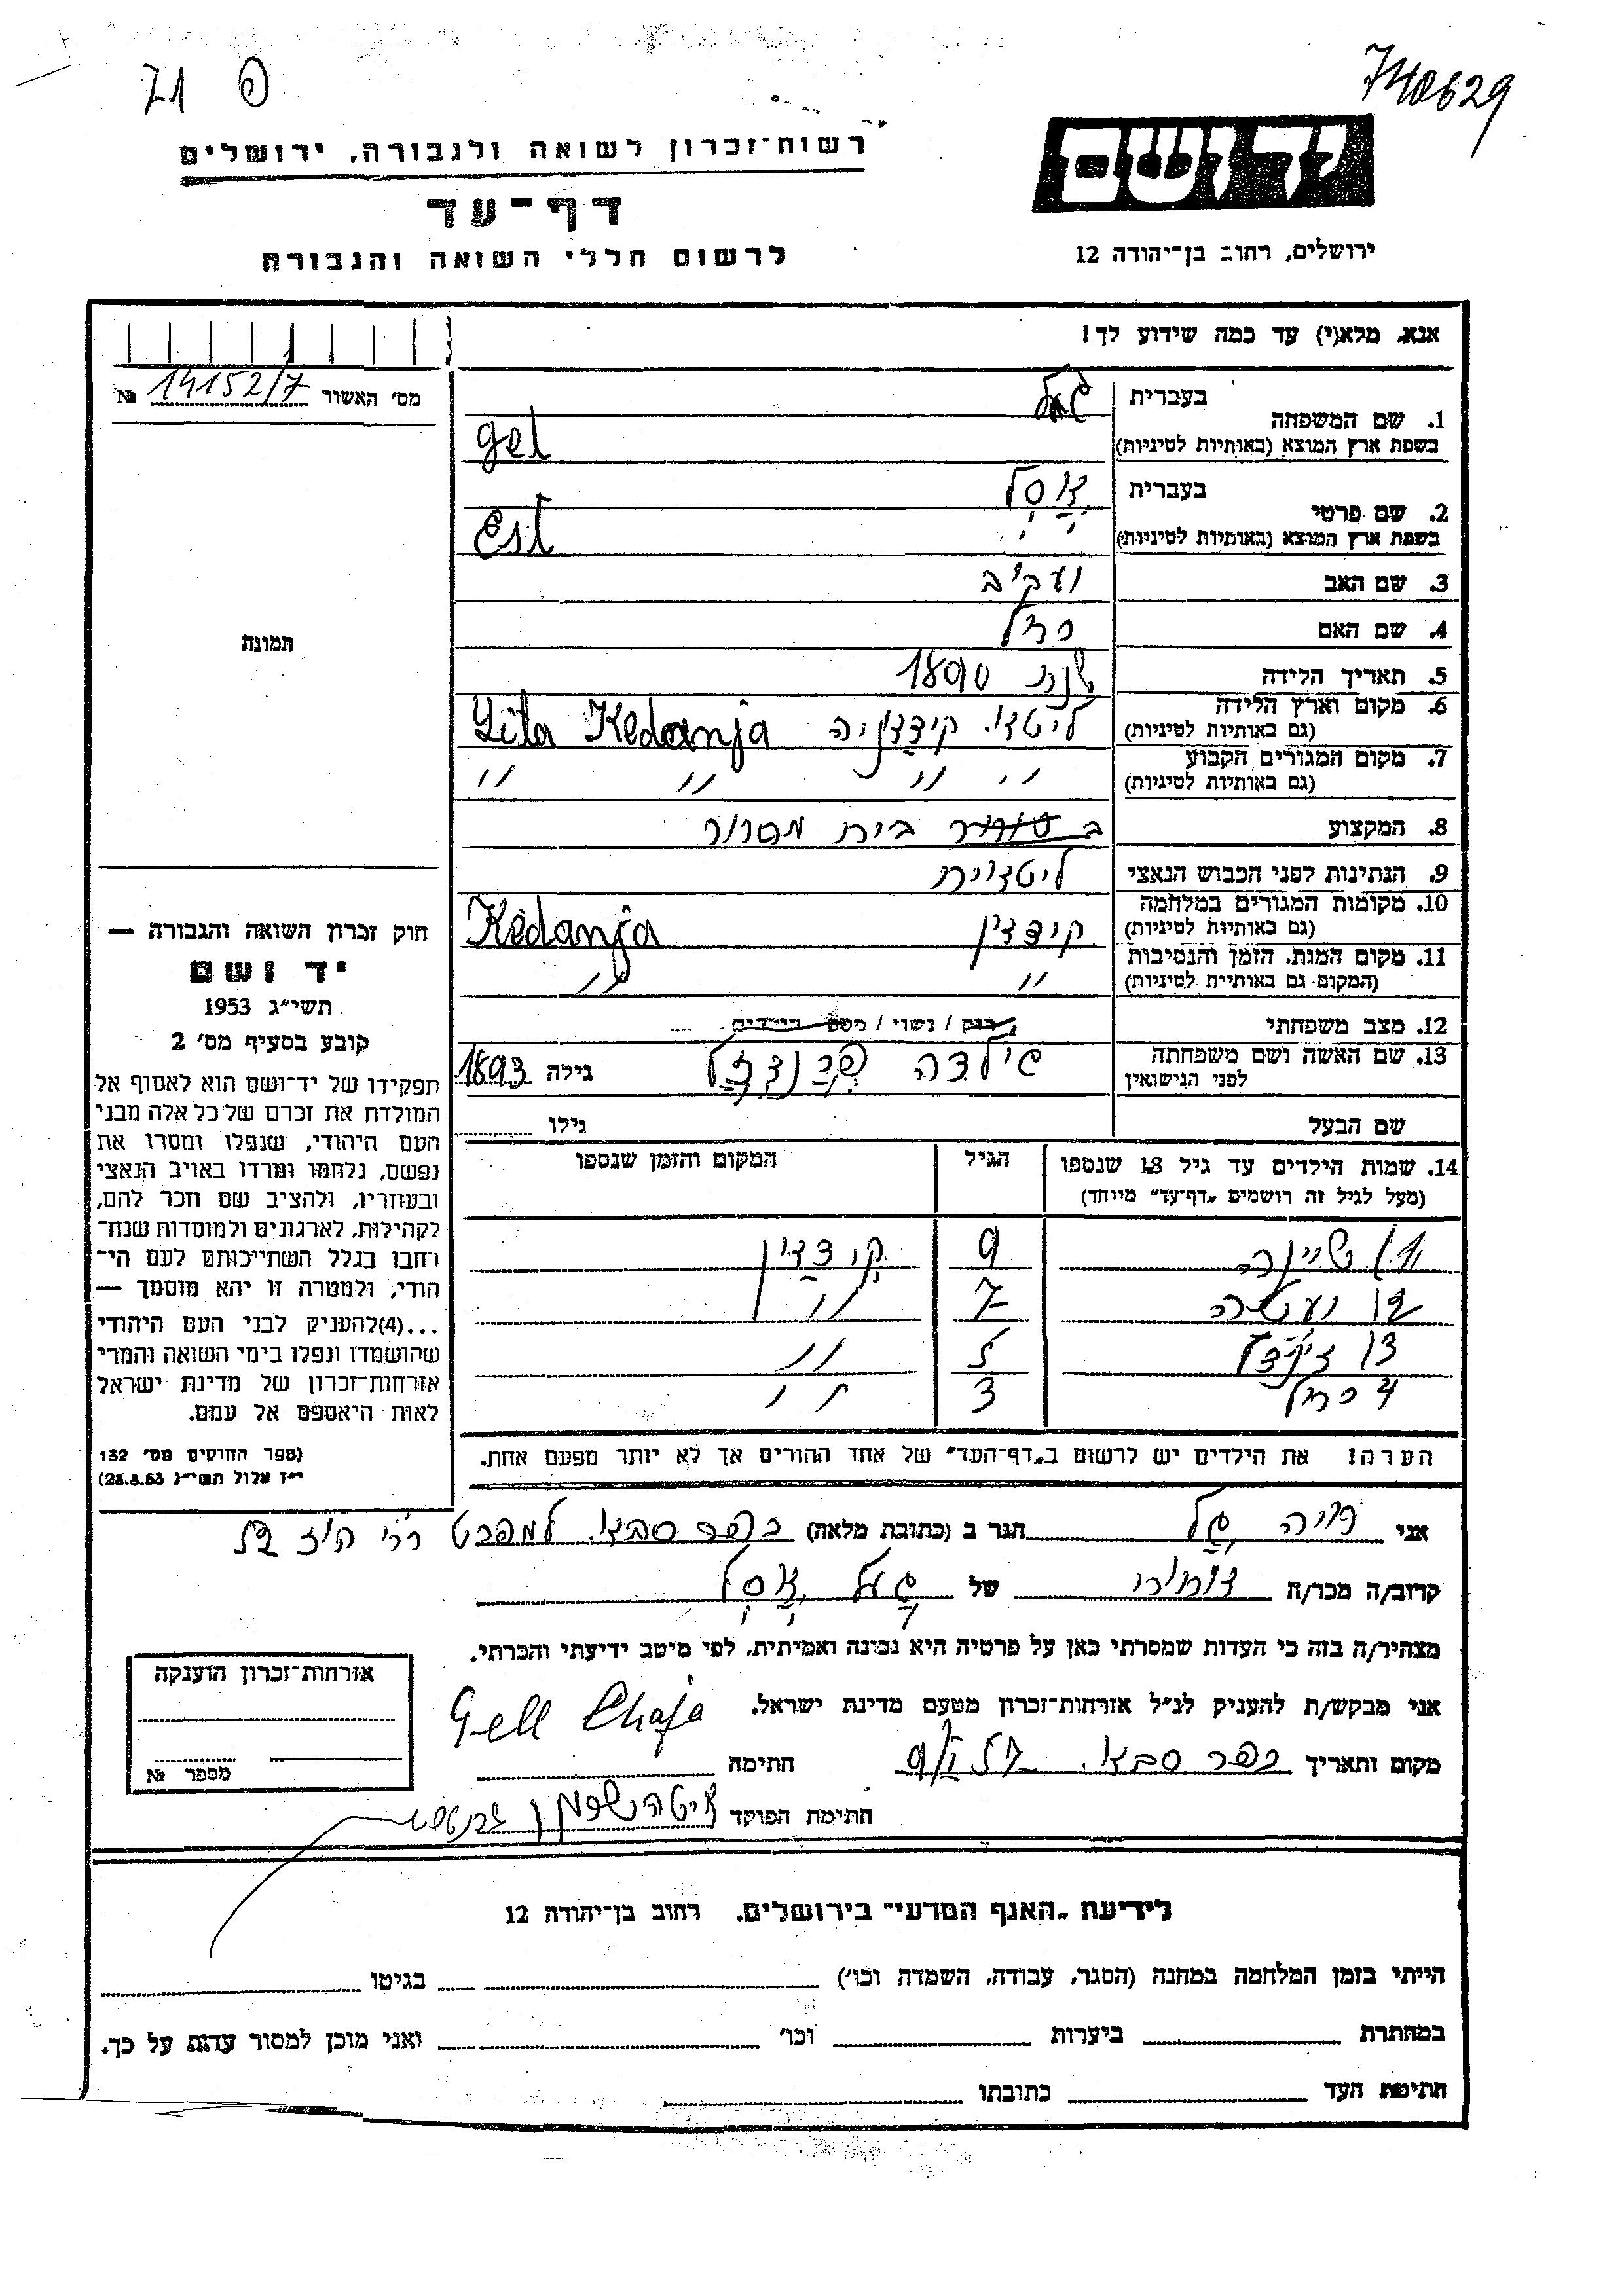 71 פ
740629
רשות־זכרון לשואה ולגבורה, ירושלים
יד ושם
דף־עד
לרשום חללי השואה והגבורה
ירושלים, רחוב בן־יהודה 12
אנא, מלא(י) עד כמה שידוע לך!
מס׳ האשור 14152/7 №
1. שם המשפחה
בעברית
בשפת ארץ המוצא (באותיות לטיניות) gel
2. שם פרטי
בעברית
בשפת ארץ המוצא (באותיות לטיניות) Esl
3. שם האב
4. שם האם רחל
5. תאריך הלידה שנת 1890
6. מקום וארץ הלידה
(גם באותיות לטיניות) ליטא. Lita Kedanja
7. מקום המגורים הקבוע
(גם באותיות לטיניות) " " " "
8. המקצוע בית מסחר
9. הנתינות לפני הכבוש הנאצי ליטאית
10. מקומות המגורים במלחמה
(גם באותיות לטיניות) Kedanja
11. מקום המות, הזמן והנסיבות
(המקום גם באותיות לטיניות) " "
12. מצב משפחתי רווק / נשוי / מספר הילדים
13. שם האשה ושם משפחתה
לפני הנישואין גילה 1893
שם הבעל גילו
14. שמות הילדים עד גיל 18 שנספו
(מעל לגיל זה רושמים „דף־עד” מיוחד)
הגיל
המקום והזמן שנספו
1) שיינה 9
2) 7 "
3) 5 "
4 רחל 3 "
הערה! את הילדים יש לרשום ב„דף־העד” של אחד ההורים אך לא יותר מפעם אחת.
תמונה
חוק זכרון השואה והגבורה —
יד ושם
תשי״ג 1953
קובע בסעיף מס׳ 2
תפקידו של יד־ושם הוא לאסוף אל
המולדת את זכרם של כל אלה מבני
העם היהודי, שנפלו ומסרו את
נפשם, נלחמו ומרדו באויב הנאצי
ובעוזריו, ולהציב שם וזכר להם,
לקהילות, לארגונים ולמוסדות שנח־
רחבו בגלל השתייכותם לעם הי־
הודי, ולמטרה זו יהא מוסמך —
...(4) להעניק לבני העם היהודי
שהושמדו ונפלו בימי השואה והמרי
אזרחות־זכרון של מדינת ישראל
לאות היאספם אל עמם.
(ספר החוקים מס׳ 132
י״ז אלול תשי״ג 28.8.53)
אני חיה גל הגר ב (כתובת מלאה) כפר סבא.
קרוב/ה מכר/ה של
מצהיר/ה בזה כי העדות שמסרתי כאן על פרטיה היא נכונה ואמיתית, לפי מיטב ידיעתי והכרתי.
אני מבקש/ת להעניק לנ״ל אזרחות־זכרון מטעם מדינת ישראל.
מקום ותאריך כפר סבא. חתימה Gell Chaja
חתימת הפוקד
אזרחות־זכרון הוענקה
מספר №
לידיעת „האגף המדעי” בירושלים, רחוב בן־יהודה 12
הייתי בזמן המלחמה במחנה (הסגר, עבודה, השמדה וכו׳) בגיטו
במחתרת ביערות וכו׳ ואני מוכן למסור עדות על כך.
חתימת העד כתובתו